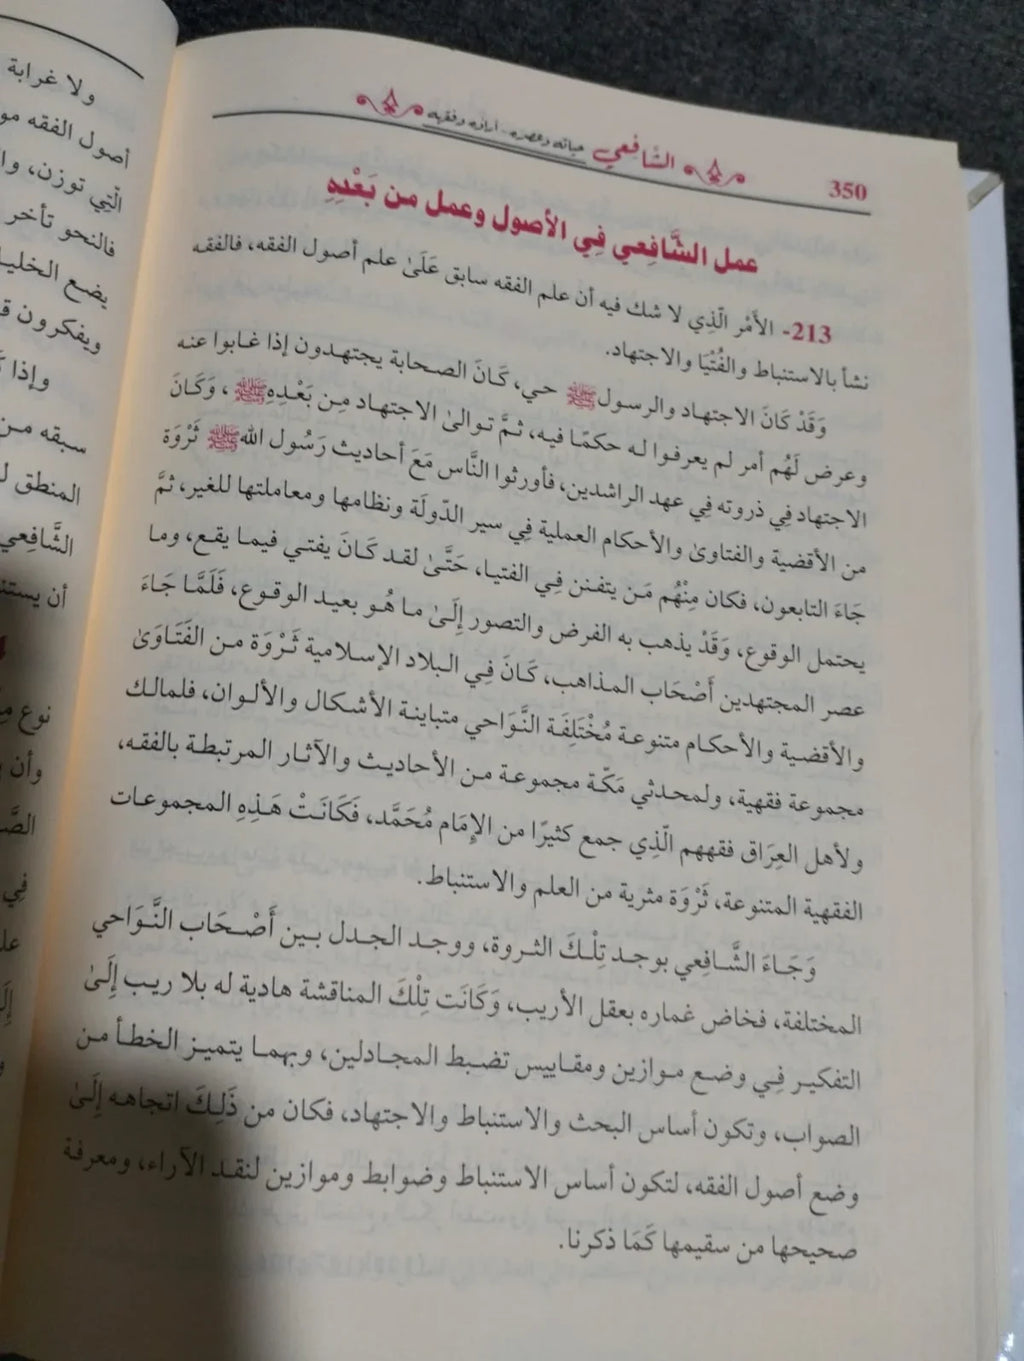 350
الشَّافِعي حياته وعصره - آراؤه وفقهه
عمل الشَّافِعي فِي الأصول وعمل من بَعْدِهِ
213- الأَمْر الَّذِي لا شك فيه أن علم الفقه سابق عَلَىٰ علم أصول الفقه، فالفقه
نشأ بالاستنباط والفُتْيَا والاجتهاد.
وَقَدْ كَانَ الاجتهاد والرسول ﷺ حي، كَانَ الصحابة يجتهدون إذا غابوا عنه
وعرض لَهُم أمر لم يعرفوا له حكمًا فيه، ثمَّ توالىٰ الاجتهاد مِن بَعْدِهِ ﷺ، وَكَانَ
الاجتهاد فِي ذروته فِي عهد الراشدين، فأورثوا النَّاس مَعَ أحاديث رَسُول الله ﷺ ثَرْوَة
من الأقضية والفتاوىٰ والأحكام العملية فِي سير الدّولَة ونظامها ومعاملتها للغير، ثمَّ
جَاءَ التابعون، فكان مِنْهُم مَن يتفنن فِي الفتيا، حَتَّىٰ لقد كَانَ يفتي فيما يقع، وما
يحتمل الوقوع، وَقَدْ يذهب به الفرض والتصور إِلَىٰ ما هُو بعيد الوقوع، فَلَمَّا جَاءَ
عصر المجتهدين أَصْحَاب المذاهب، كَانَ فِي البلاد الإسلامية ثَرْوَة من الفَتَاوَىٰ
والأقضية والأحكام متنوعة مُخْتَلِفَة النَّوَاحي متباينة الأشكال والألوان، فلمالك
مجموعة فقهية، ولمحدثي مَكّة مجموعة من الأحاديث والآثار المرتبطة بالفقه،
ولأهل العِرَاق فقههم الَّذِي جمع كثيرًا من الإِمَام مُحَمَّد، فَكَانَتْ هَذِهِ المجموعات
الفقهية المتنوعة، ثَرْوَة مثرية من العلم والاستنباط.
وَجَاءَ الشَّافِعي بوجد تِلْكَ الثروة، ووجد الجدل بين أَصْحَاب النَّوَاحي
المختلفة، فخاض غماره بعقل الأريب، وَكَانَت تِلْكَ المناقشة هادية له بلا ريب إِلَىٰ
التفكير فِي وضع موازين ومقاييس تضبط المجادلين، وبهما يتميز الخطأ من
الصواب، وتكون أساس البحث والاستنباط والاجتهاد، فكان من ذَلِكَ اتجاهه إِلَىٰ
وضع أصول الفقه، لتكون أساس الاستنباط وضوابط وموازين لنقد الآراء، ومعرفة
صحيحها من سقيمها كَمَا ذكرنا.
ولا غرابة
أصول الفقه
الَّتِي توزن،
فالنحو تأخر
يضع
ويفكرون
وإذا
سبقه من
المنطق
الشَّافِعي
أن
نوع
وأن
فِي